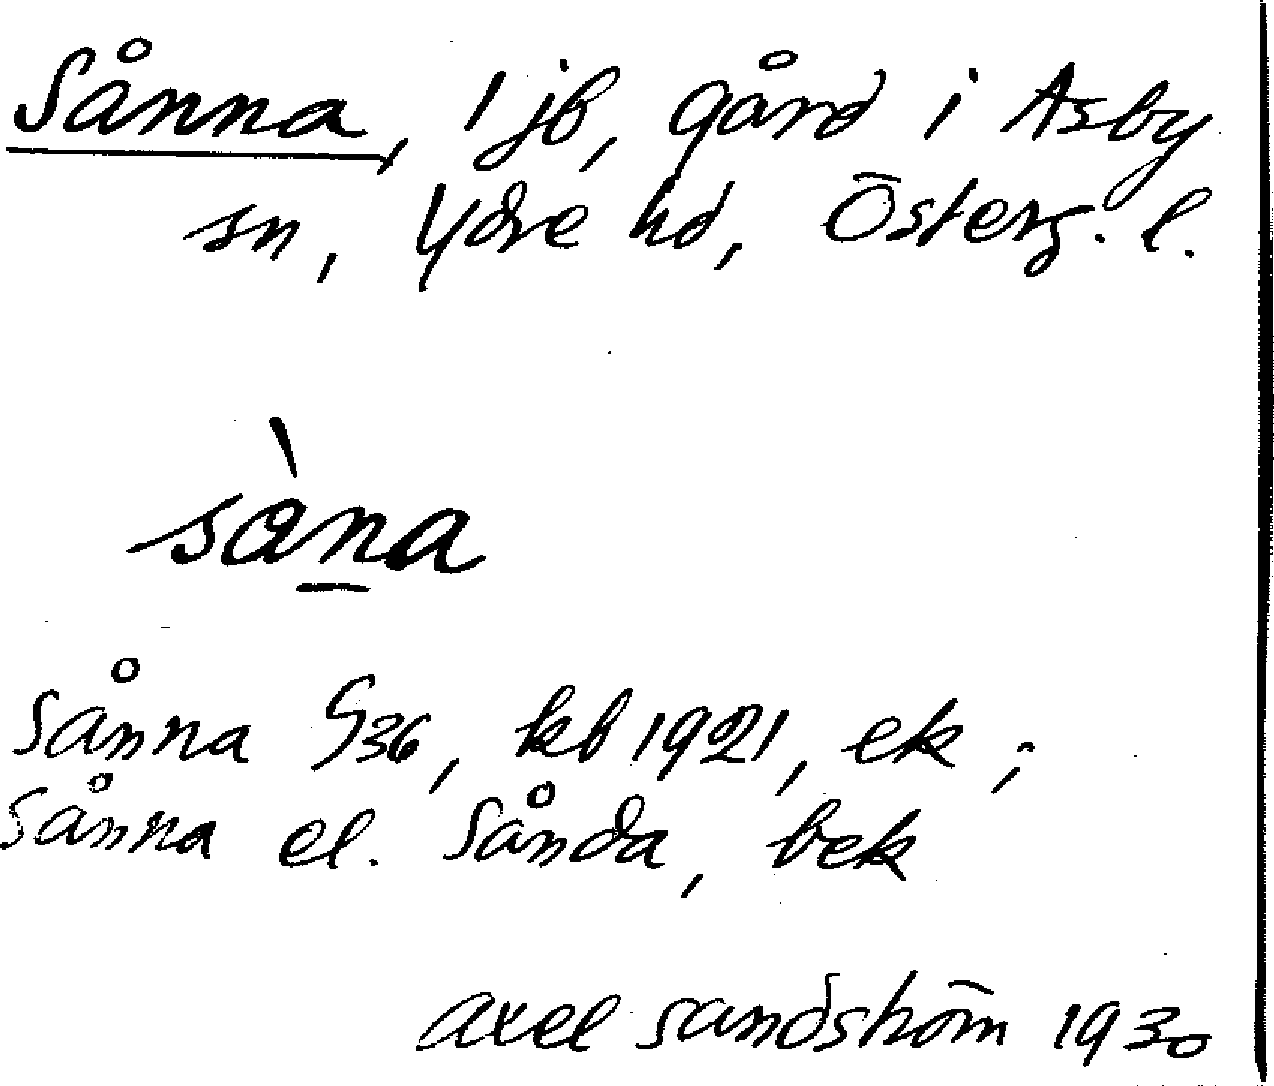 Sånna, 1 jb, gård i Asby
sn, Ydre hd, Österg. l.
sàna
Sånna G36, kb 1921, ek;
Sånna el. Sånda, bek
axel sandström 1930